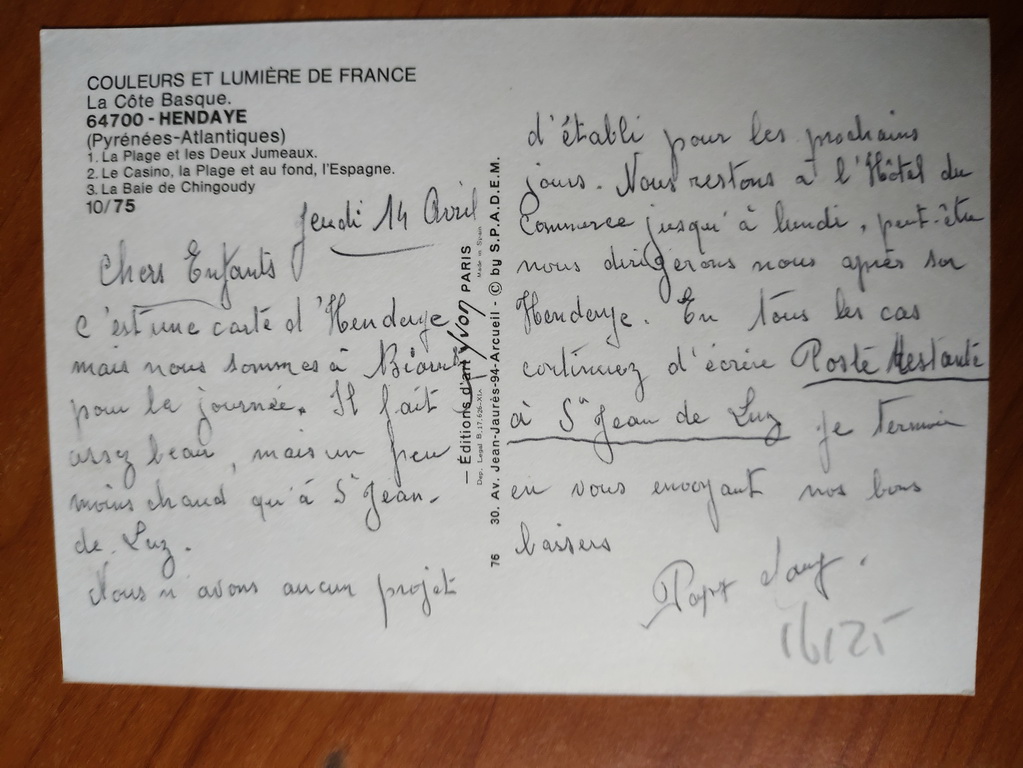 COULEURS ET LUMIÈRE DE FRANCE
La Côte Basque.
64700 - HENDAYE
(Pyrénées-Atlantiques)
1. La Plage et les Deux Jumeaux.
2. Le Casino, la Plage et au fond, l'Espagne.
3. La Baie de Chingoudy
10/75
Jeudi 14 Avril
Chers Enfants
C'est une carte d'Hendaye
mais nous sommes à
pour la journée. Il fait
assez beau, mais un peu
moins chaud qu'à St Jean-
de-Luz.
Nous n'avons aucun projet
— Éditions d'art Yvon PARIS
Made in Spain
Dep. Legal B. 17.626-XIX
30. Av. Jean-Jaurès-94-Arcueil - © by S.P.A.D.E.M.
76
d'établi pour les prochains
jours. Nous restons à l'Hôtel du
Commerce jusqu'à lundi, peut-être
nous dirigerons nous après sur
Hendaye. En tous les cas
continuez d'écrire Poste Restante
à St Jean de Luz je termine
en vous envoyant nos bons
baisers
Papy